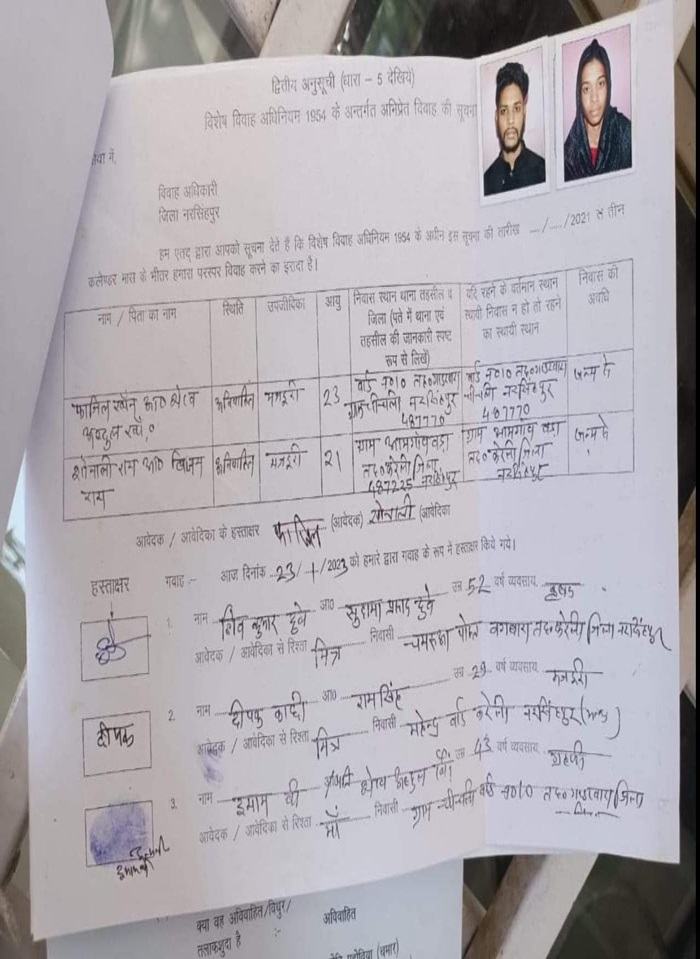 द्वितीय अनुसूची (धारा – 5 देखिये)
विशेष विवाह अधिनियम 1954 के अन्तर्गत अभिप्रेत विवाह की सूचना
सेवा में,
विवाह अधिकारी
जिला नरसिंहपुर
हम एतद् द्वारा आपको सूचना देते है कि विशेष विवाह अधिनियम 1954 के अधीन इस सूचना की तारीख .../..../2021 से तीन
कलेण्डर मास के भीतर हमारा परस्पर विवाह करने का इरादा है।
नाम / पिता का नाम
स्थिति
उपजीविका
आयु
निवास स्थान थाना तहसील व
जिला (पते में थाना एवं
तहसील की जानकारी स्पष्ट
रूप से लिखें)
यदि रहने के वर्तमान स्थान
स्थायी निवास न हो तो रहने
का स्थायी स्थान
निवास की
अवधि
फाजिल खॉन आ० शेख
अब्दुल
अविवाहित
मजदूरी
23
वार्ड न०10 त०गाडरवारा
ग्राम चीचली नरसिंहपुर
487770
वार्ड न०10 त०गाडरवारा
चीचली नरसिंहपुर
487770
जन्म से
सोनाली राय आ०
राय
अविवाहित
मजदूरी
21
ग्राम आमगांव बड़ा
त० करेली जिला
487225 नरसिंहपुर
ग्राम आमगांव बड़ा
त० करेली जिला
नरसिंहपुर
जन्म से
आवेदक / आवेदिका के हस्ताक्षर फाजिल (आवेदक) सोनाली (आवेदिका
हस्ताक्षर
गवाह :- आज दिनांक 23/1/2023 को हमारे द्वारा गवाह के रूप में हस्ताक्षर किये गये।
1. नाम शिव कुमार दुबे आ० सुखराम प्रसाद दुबे उम्र 52 वर्ष व्यवसाय कृषक
आवेदक / आवेदिका से रिश्ता मित्र निवासी पोस्ट त० करेली जिला नरसिंहपुर
दीपक
2. नाम दीपक आ० रामसिंह उम्र 29 वर्ष व्यवसाय मजदूरी
आवेदक / आवेदिका से रिश्ता मित्र निवासी महेन्द्र वार्ड करेली नरसिंहपुर
3. नाम इमाम बी उम्र 43 वर्ष व्यवसाय गृहणी
आवेदक / आवेदिका से रिश्ता माँ निवासी ग्राम चीचली वार्ड न०10 त० गाडरवारा जिला
क्या वह अविवाहित/विधुर/
तलाकशुदा है
:-
अविवाहित
(चमार)